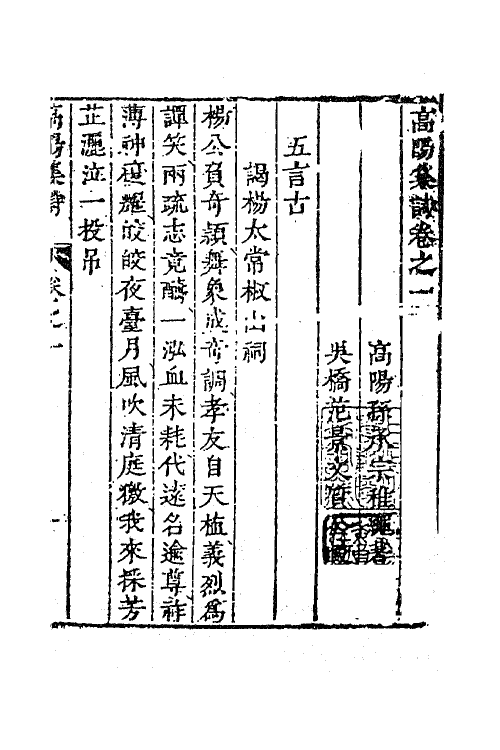 高陽集詩卷之一
高陽孫承宗稚繩著
吳橋范景文
五言古
謁楊太常椒山祠
楊公負奇穎舞象成奇調孝友自天植義烈爲
譚笑兩疏志竟酬一泓血未耗代遠名逾尊祚
薄神耀皎皎夜臺月風吹清庭獥我來採芳
芷灑泣一投吊
高陽集詩 卷之一 一